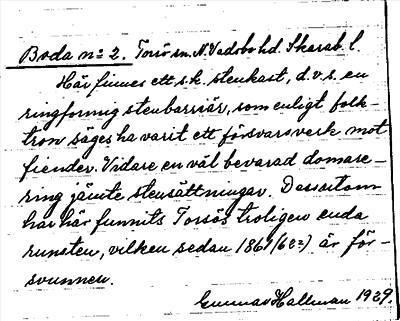 Boda nº 2. Torsö sn. N. Vadsbo hd. Skarab. l.
Här finnes ett s.k. stenkast, d.v.s. en
ringformig stenbarriär, som enligt folk-
tron säges ha varit ett försvarsverk mot
fiender. Vidare en väl bevarad domare-
ring jämte stensättningar. Dessutom
har här funnits Torsös troligen enda
runsten, vilken sedan 1867 (68?) är för-
svunnen.
Gunnar Hallman 1929.